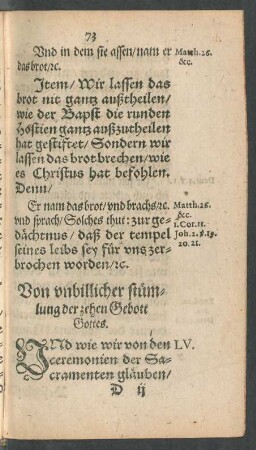 73
Vnd in dem sie assen/nam er Matth.26.
das brot/ꝛc. &c.
Item/ Wir lassen das
brot nit gantz außtheilen/
wie der Bapst die runden
Hostien gantz außzutheilen
hat gestifftet/ Sondern wir
lassen das brot brechen/wie
es Christus hat befohlen.
Denn/
Er nam das brot/vnd brachs/ꝛc. Matth.26.
vnd sprach/ Solches thut: zur ge- &c.
dächtnus/ daß der tempel 1.Cor.11.
seines leibs sey für vns zer- Joh.2.v.19.
brochen worden/ꝛc. 20.21.
Von vnbillicher stüm-
lung der zehen Gebott
Gottes.
VNd wie wir von den LV.
ceremonien der Sa-
cramenten gläuben/
D ij